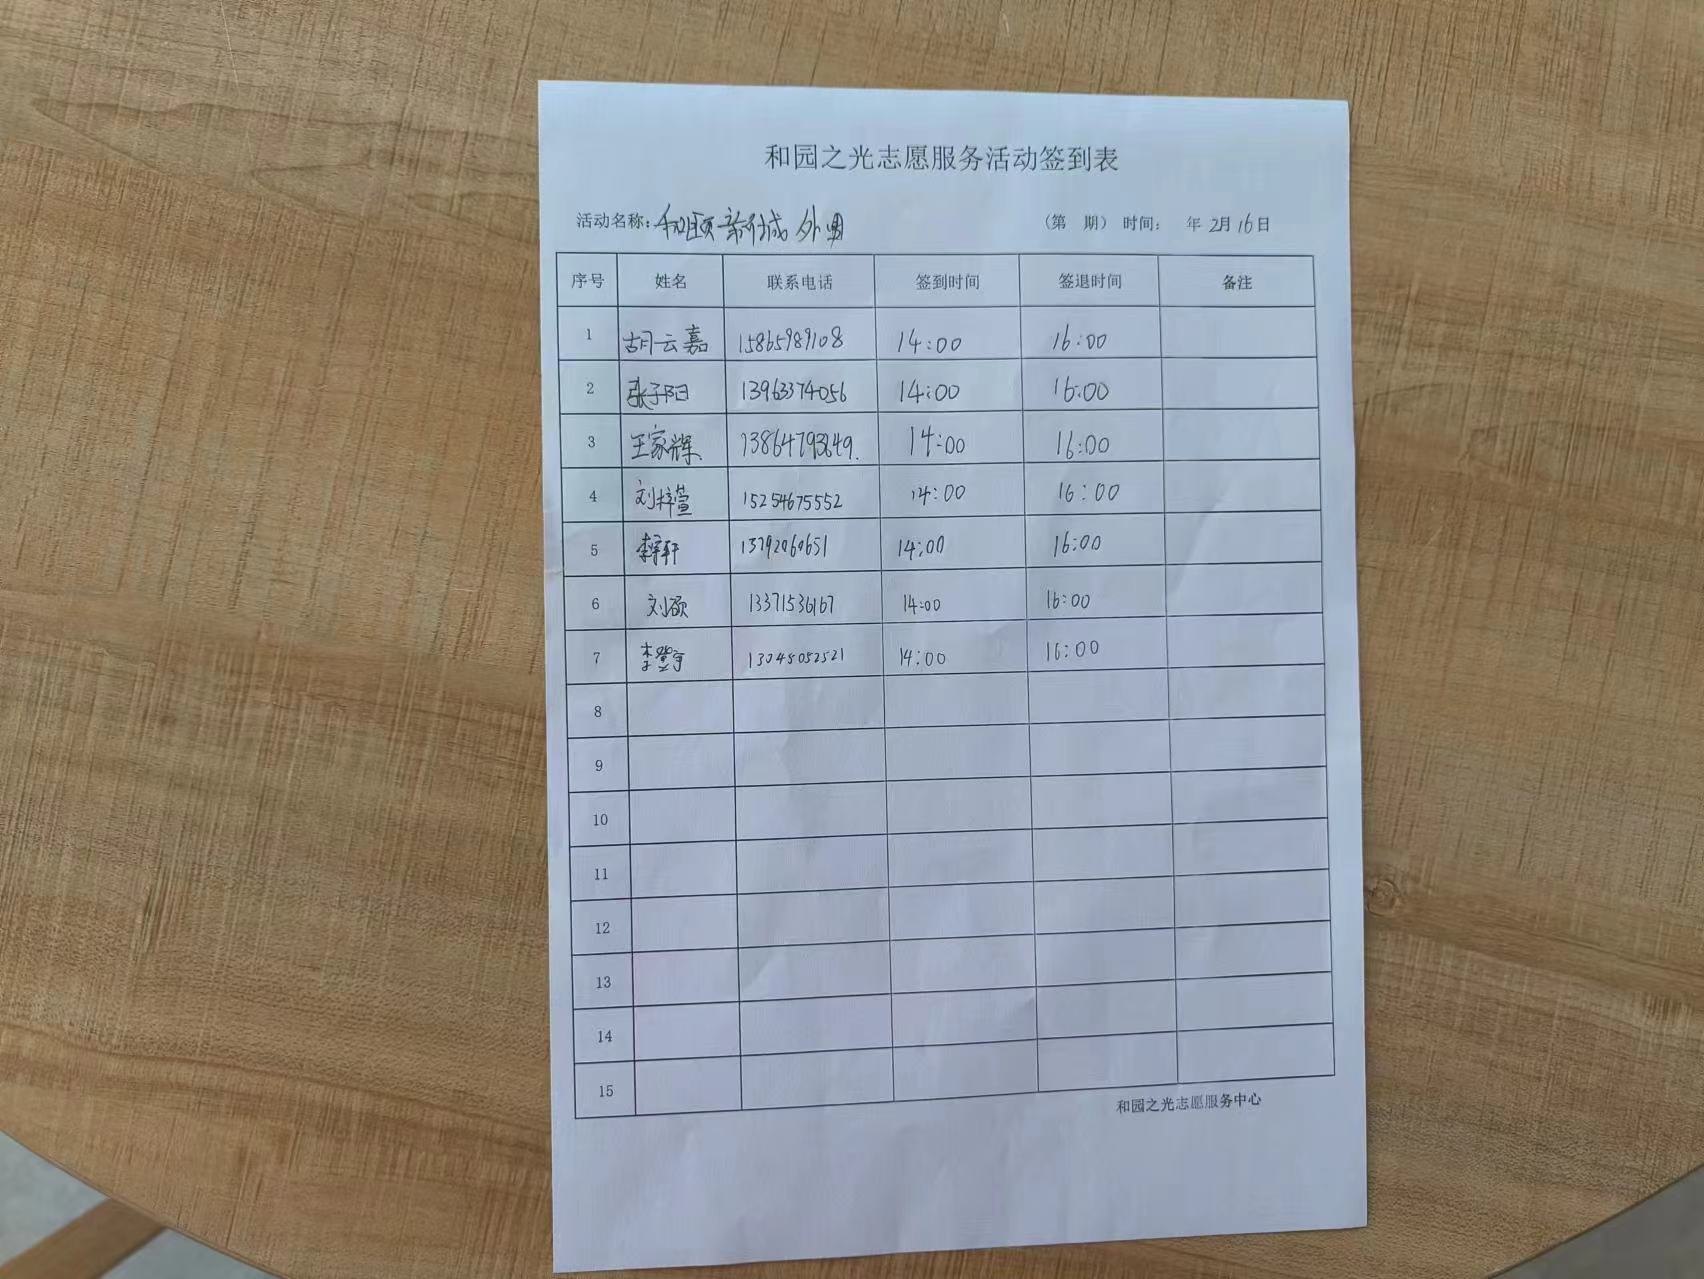 和园之光志愿服务活动签到表
活动名称：和颐新城外围 （第 期） 时间： 年 2月16日
序号 姓名 联系电话 签到时间 签退时间 备注
1 胡云嘉 15865989108 14:00 16:00
2 张子阳 13963374056 14:00 16:00
3 王家辉 13864793649. 14:00 16:00
4 刘梓萱 15254675552 14:00 16:00
5 14:00 16:00
6 刘硕 13371536167 14:00 16:00
7 李登宇 13045052521 14:00 16:00
8
9
10
11
12
13
14
15
和园之光志愿服务中心